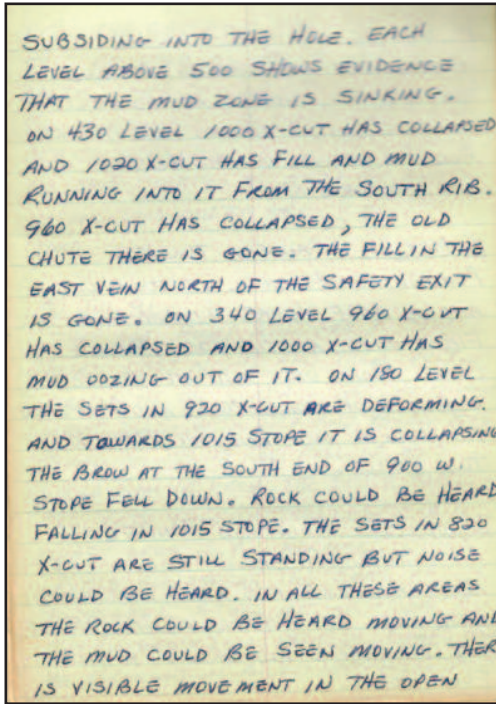 SUBSIDING INTO THE HOLE. EACH
LEVEL ABOVE 500 SHOWS EVIDENCE
THAT THE MUD ZONE IS SINKING.
ON 430 LEVEL 1000 X-CUT HAS COLLAPSED
AND 1020 X-CUT HAS FILL AND MUD
RUNNING INTO IT FROM THE SOUTH RIB.
960 X-CUT HAS COLLAPSED, THE OLD
CHUTE THERE IS GONE. THE FILL IN THE
EAST VEIN NORTH OF THE SAFETY EXIT
IS GONE. ON 340 LEVEL 960 X-CUT
HAS COLLAPSED AND 1000 X-CUT HAS
MUD OOZING OUT OF IT. ON 180 LEVEL
THE SETS IN 920 X-CUT ARE DEFORMING.
AND TOWARDS 1015 STOPE IT IS COLLAPSING
THE BROW AT THE SOUTH END OF 900 W.
STOPE FELL DOWN. ROCK COULD BE HEARD
FALLING IN 1015 STOPE. THE SETS IN 820
X-CUT ARE STILL STANDING BUT NOISE
COULD BE HEARD. IN ALL THESE AREAS
THE ROCK COULD BE HEARD MOVING AND
THE MUD COULD BE SEEN MOVING. THER
IS VISIBLE MOVEMENT IN THE OPEN